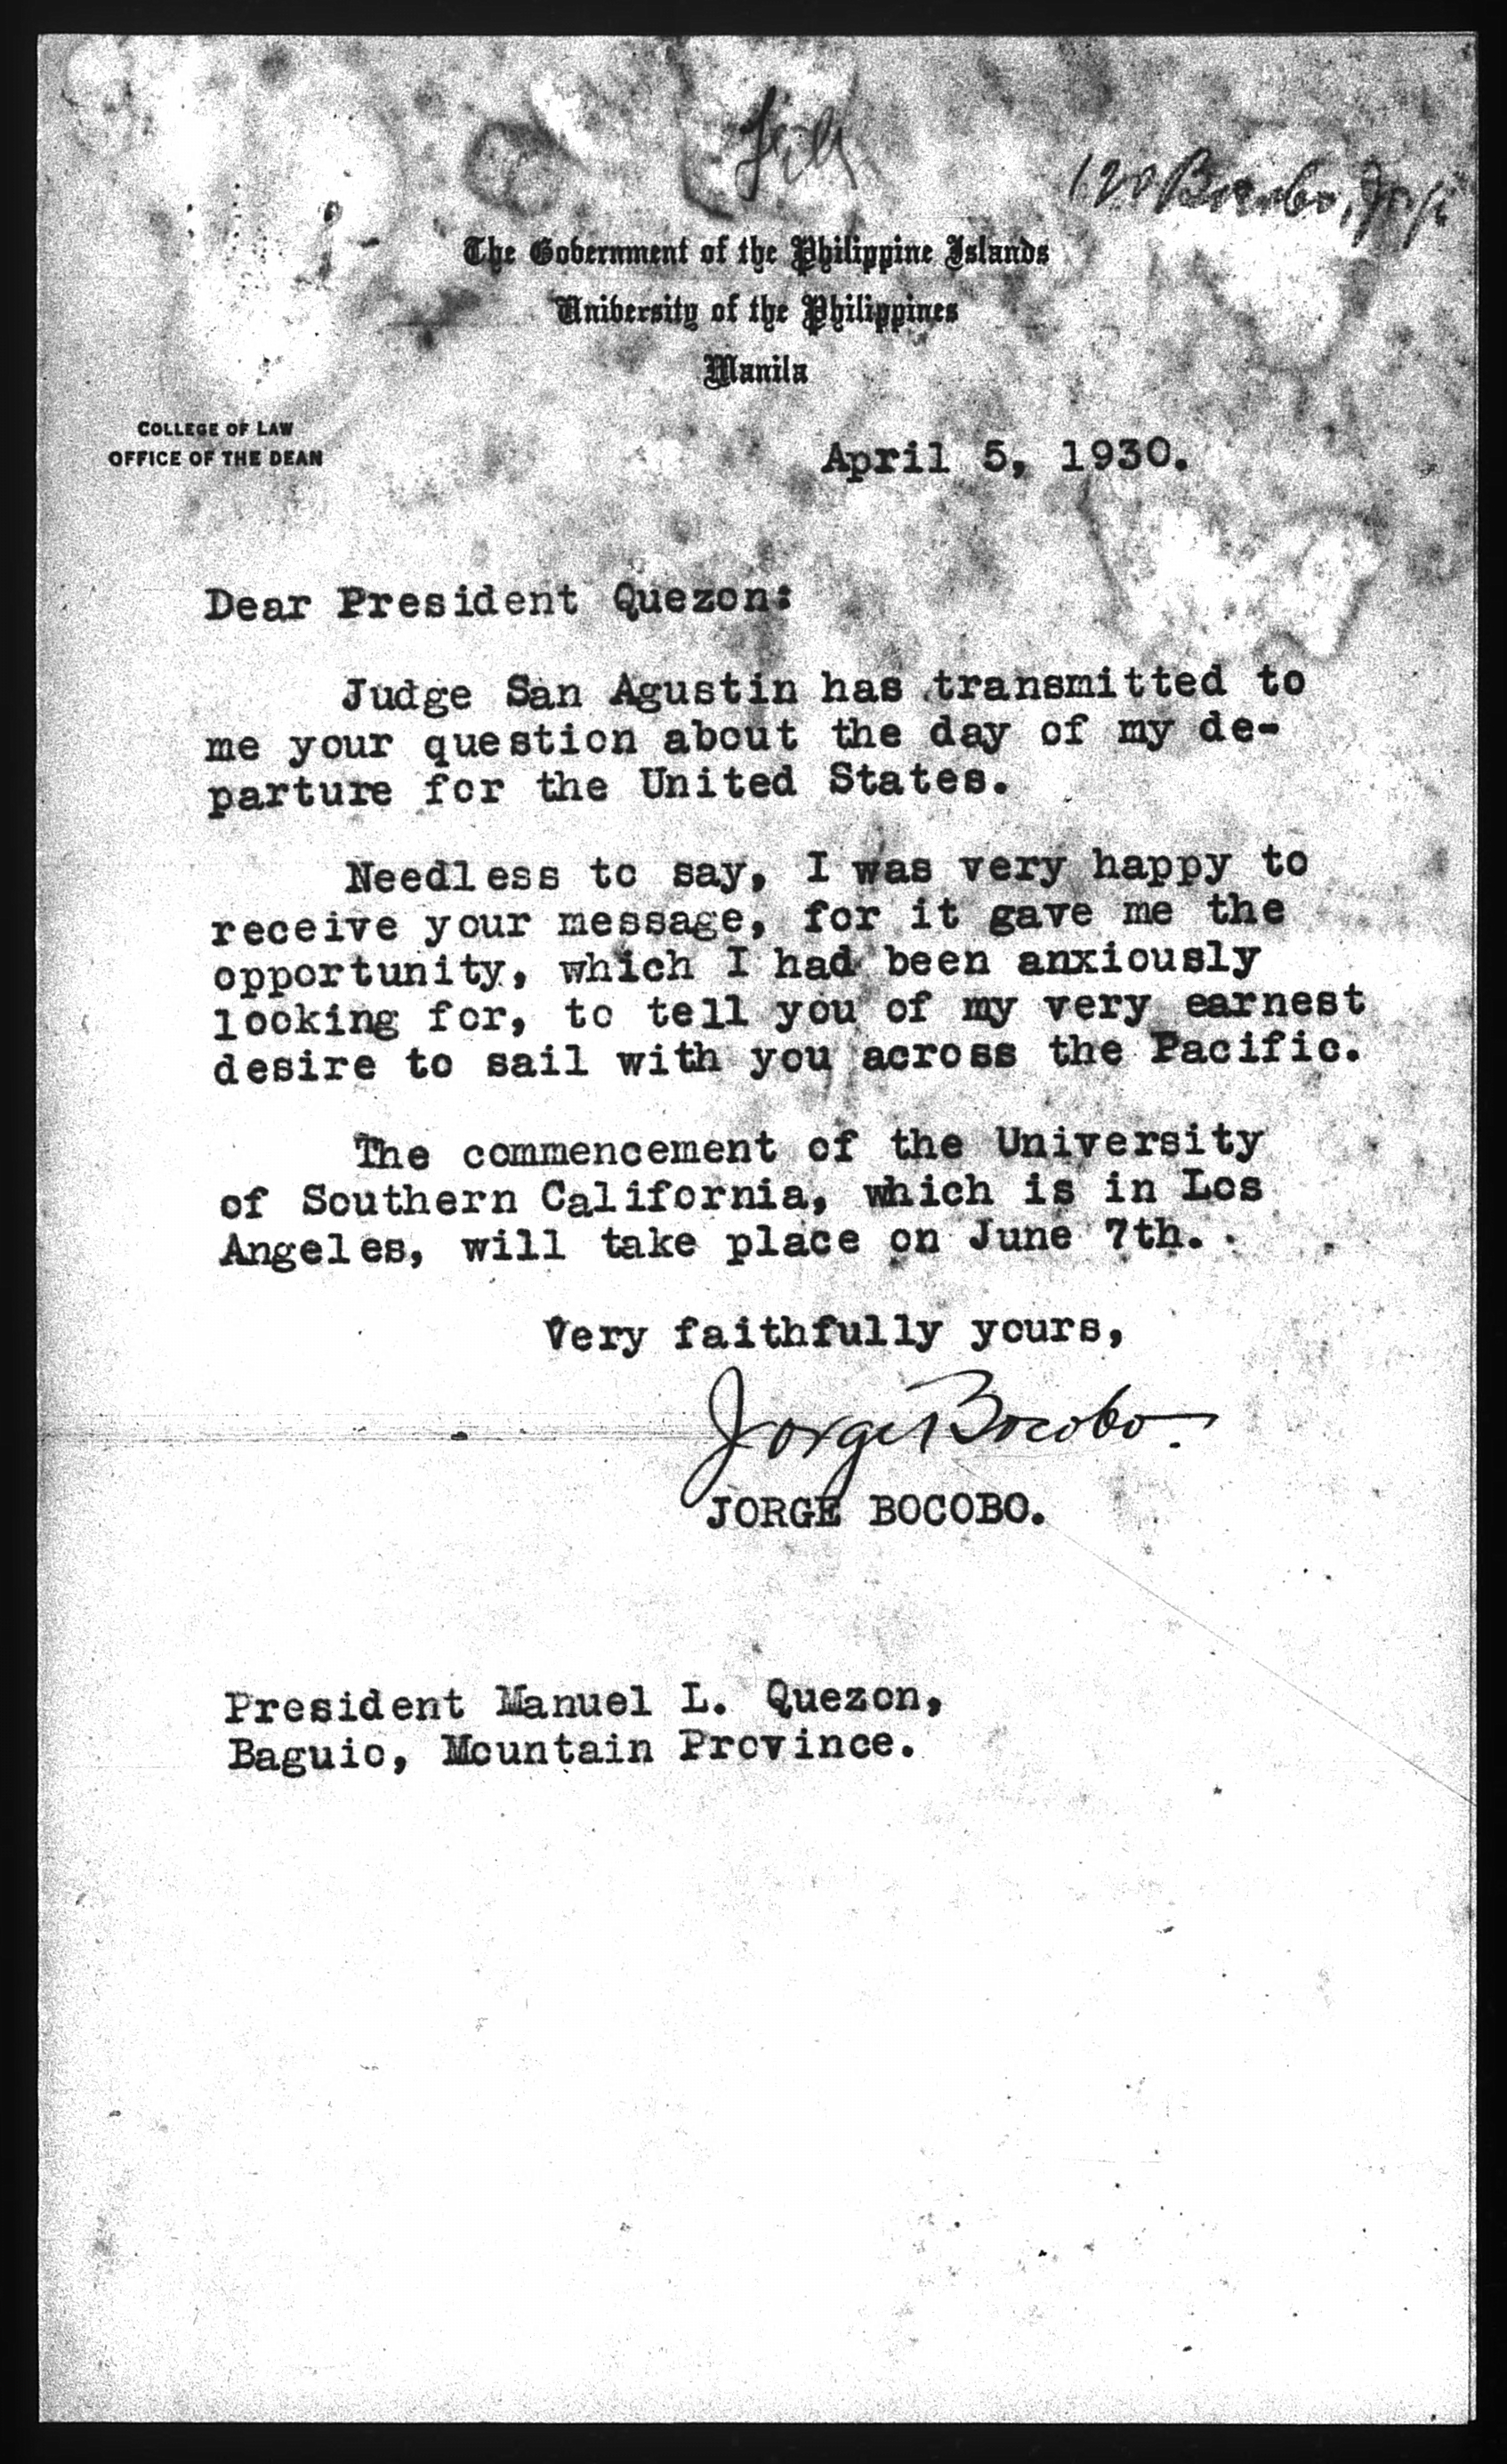 File
Bocobo, Jorge
The Government of the Philippine Islands
University of the Philippines
Manila
COLLEGE OF LAW
OFFICE OF THE DEAN
April 5, 1930.
Dear President Quezon:
Judge San Agustin has transmitted to
me your question about the day of my de-
parture for the United States.
Needless to say, I was very happy to
receive your message, for it gave me the
opportunity, which I had been anxiously
looking for, to tell you of my very earnest
desire to sail with you across the Pacific.
The commencement of the University
of Southern California, which is in Los
Angeles, will take place on June 7th.
Very faithfully yours,
Jorge Bocobo.
JORGE BOCOBO.
President Manuel L. Quezon,
Baguio, Mountain Province.